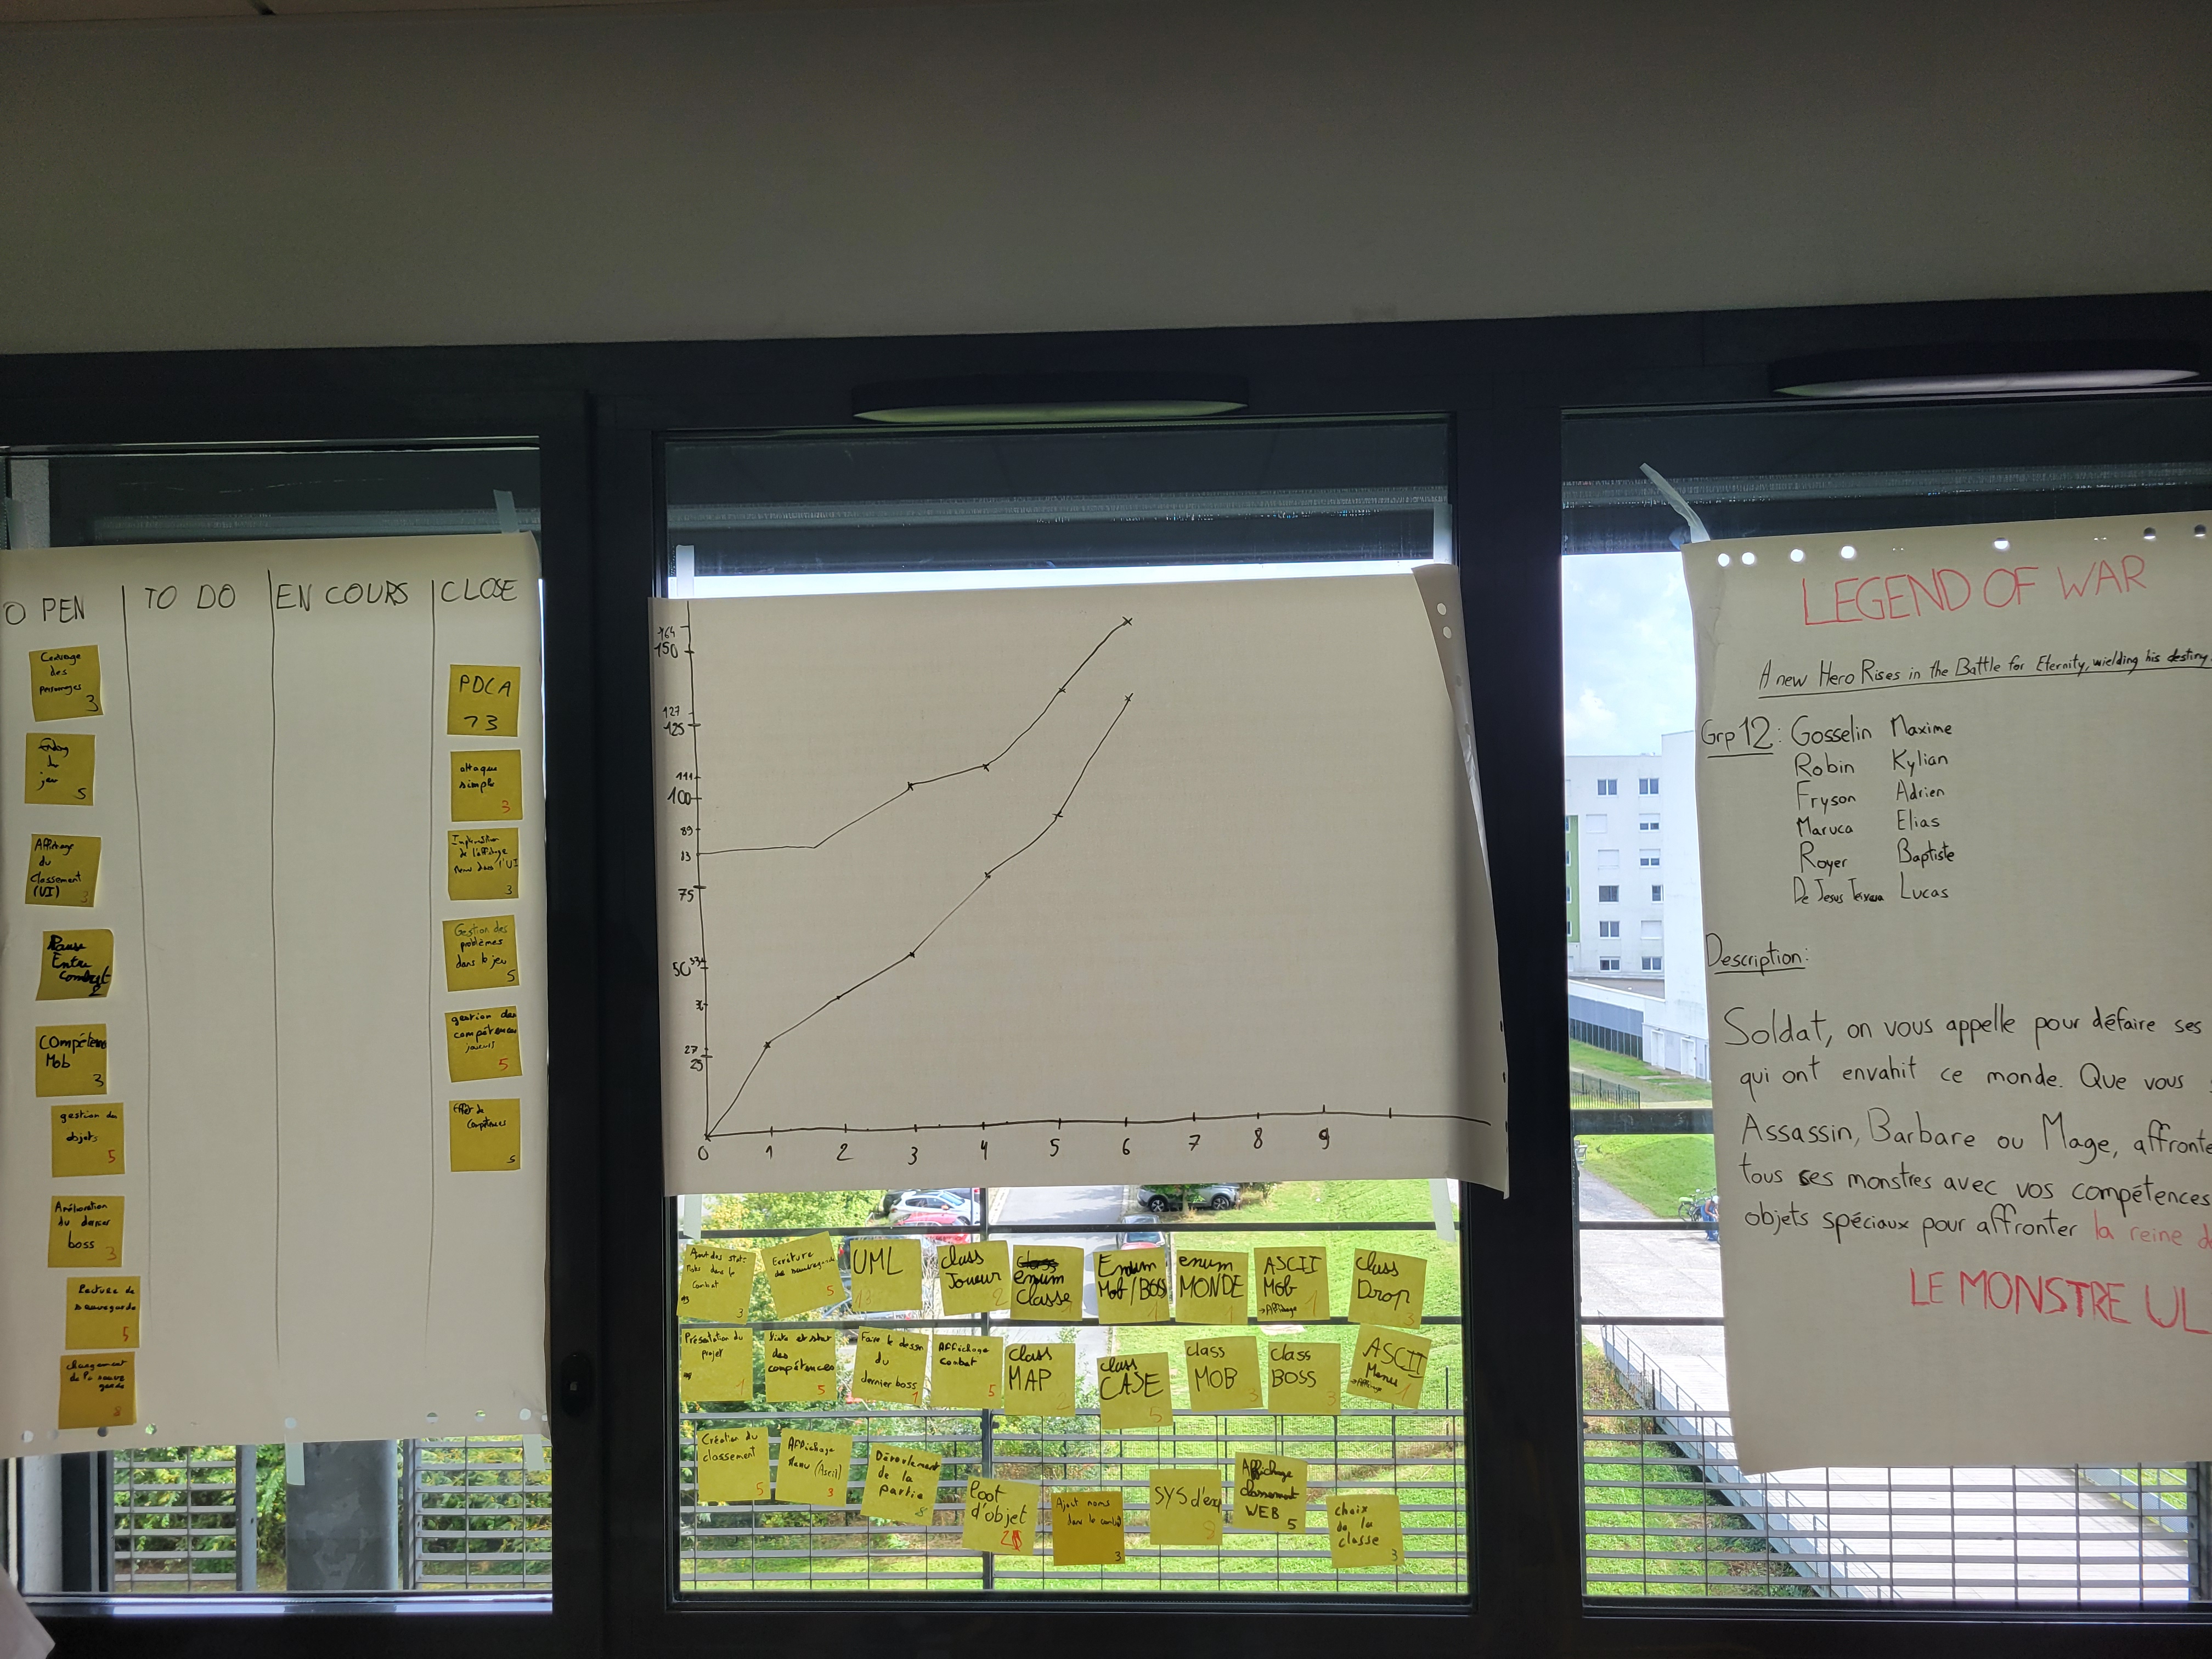 OPEN
TO DO
EN COURS
CLOSE
des
personnages
3
jeu
5
Affichage
du
Classement
(UI)
3
Pause
Entre
combat
2
Compétence
Mob
3
gestion des
objets
5
Amélioration
du dernier
boss
3
Lecture de
sauvegarde
5
chargement
de la sauve
garde
8
PDCA
13
attaque
simple
3
de l'affichage
Menu dans l'UI
3
Gestion des
problèmes
dans le jeu
5
gestion des
compétences
joueurs
5
Effet de
Compétences
5
164
150
127
125
111
100
89
83
75
50
27
25
0 1 2 3 4 5 6 7 8 9
Ajout des stat-
dans le
combat
3
Ecriture
de sauvegarde
5
UML
13
class
Joueur
2
class
enum
Classe
1
Enum
Mob/BOSS
1
enum
MONDE
1
ASCII
Mob
→Affichage
1
class
Drop
3
Présentation du
projet
1
Liste et stat
des
compétences
5
Faire le dessin
du
dernier boss
1
Affichage
combat
5
class
MAP
2
class
CASE
5
class
MOB
3
class
BOSS
3
ASCII
Menu
→Affichage
1
Création du
classement
5
Affichage
Menu (Ascii)
3
Déroulement
de la
partie
8
loot
d'objet
2
Ajout noms
dans le combat
3
SYS d'exp
8
Affichage
classement
WEB
5
choix
de la
classe
3
LEGEND OF WAR
A new Hero Rises in the Battle for Eternity, wielding his destiny.
Grp 12: Gosselin Maxime
Robin Kylian
Fryson Adrien
Maruca Elias
Royer Baptiste
De Jesus Teixeira Lucas
Description:
Soldat, on vous appelle pour défaire ses
qui ont envahit ce monde. Que vous
Assassin, Barbare ou Mage, affronte
tous ses monstres avec vos compétences
objets spéciaux pour affronter la reine de
LE MONSTRE UL